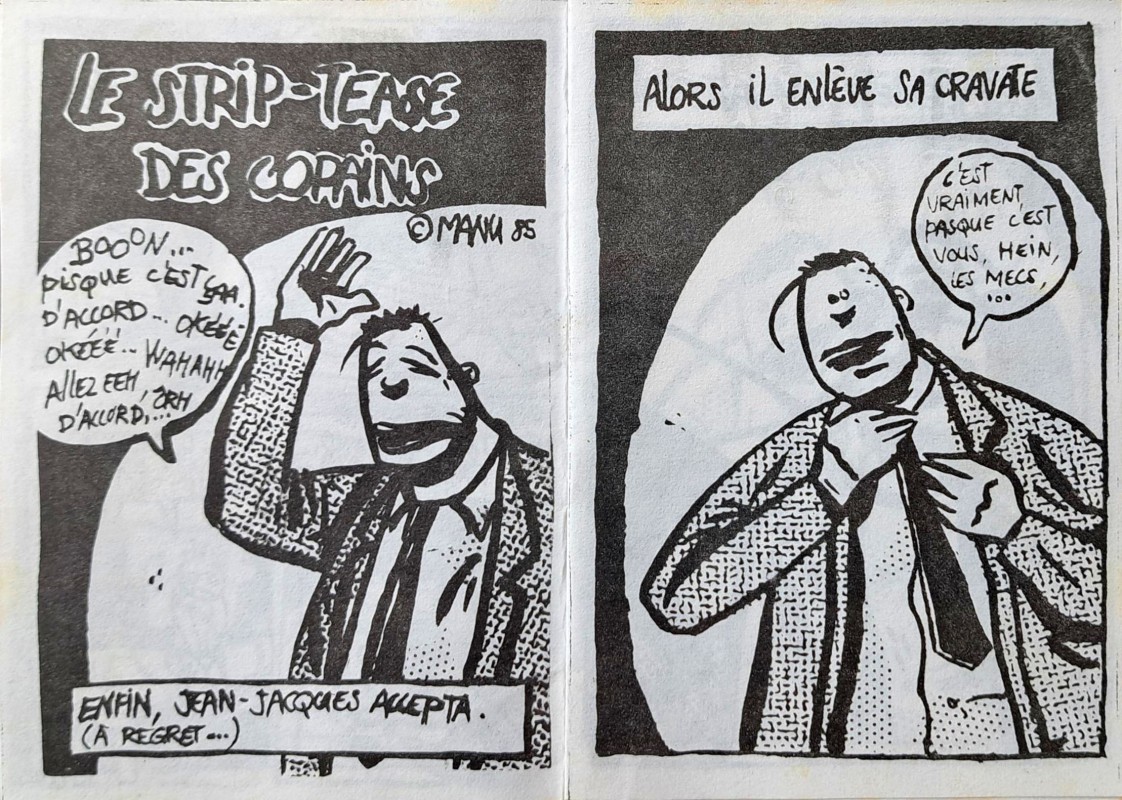 LE STRIP-TEASE
DES COPAINS
© MANU 85
BOOON...
PISQUE C'EST GAA.
D'ACCORD... OKÉÉÉ
OKÉÉÉ... WAHAHH
ALLEZ EEH, ORH
D'ACCORD,...
ENFIN, JEAN-JACQUES ACCEPTA.
(À REGRET...)
ALORS IL ENLÈVE SA CRAVATE
C'EST
VRAIMENT
PASQUE C'EST
VOUS, HEIN,
LES MECS,
...